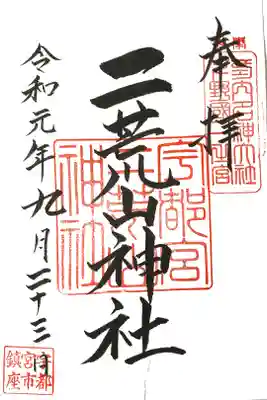 奉拝
二荒山神社
令和元年九月二十三日
宇都宮
神社
宇都
宮市
鎮座